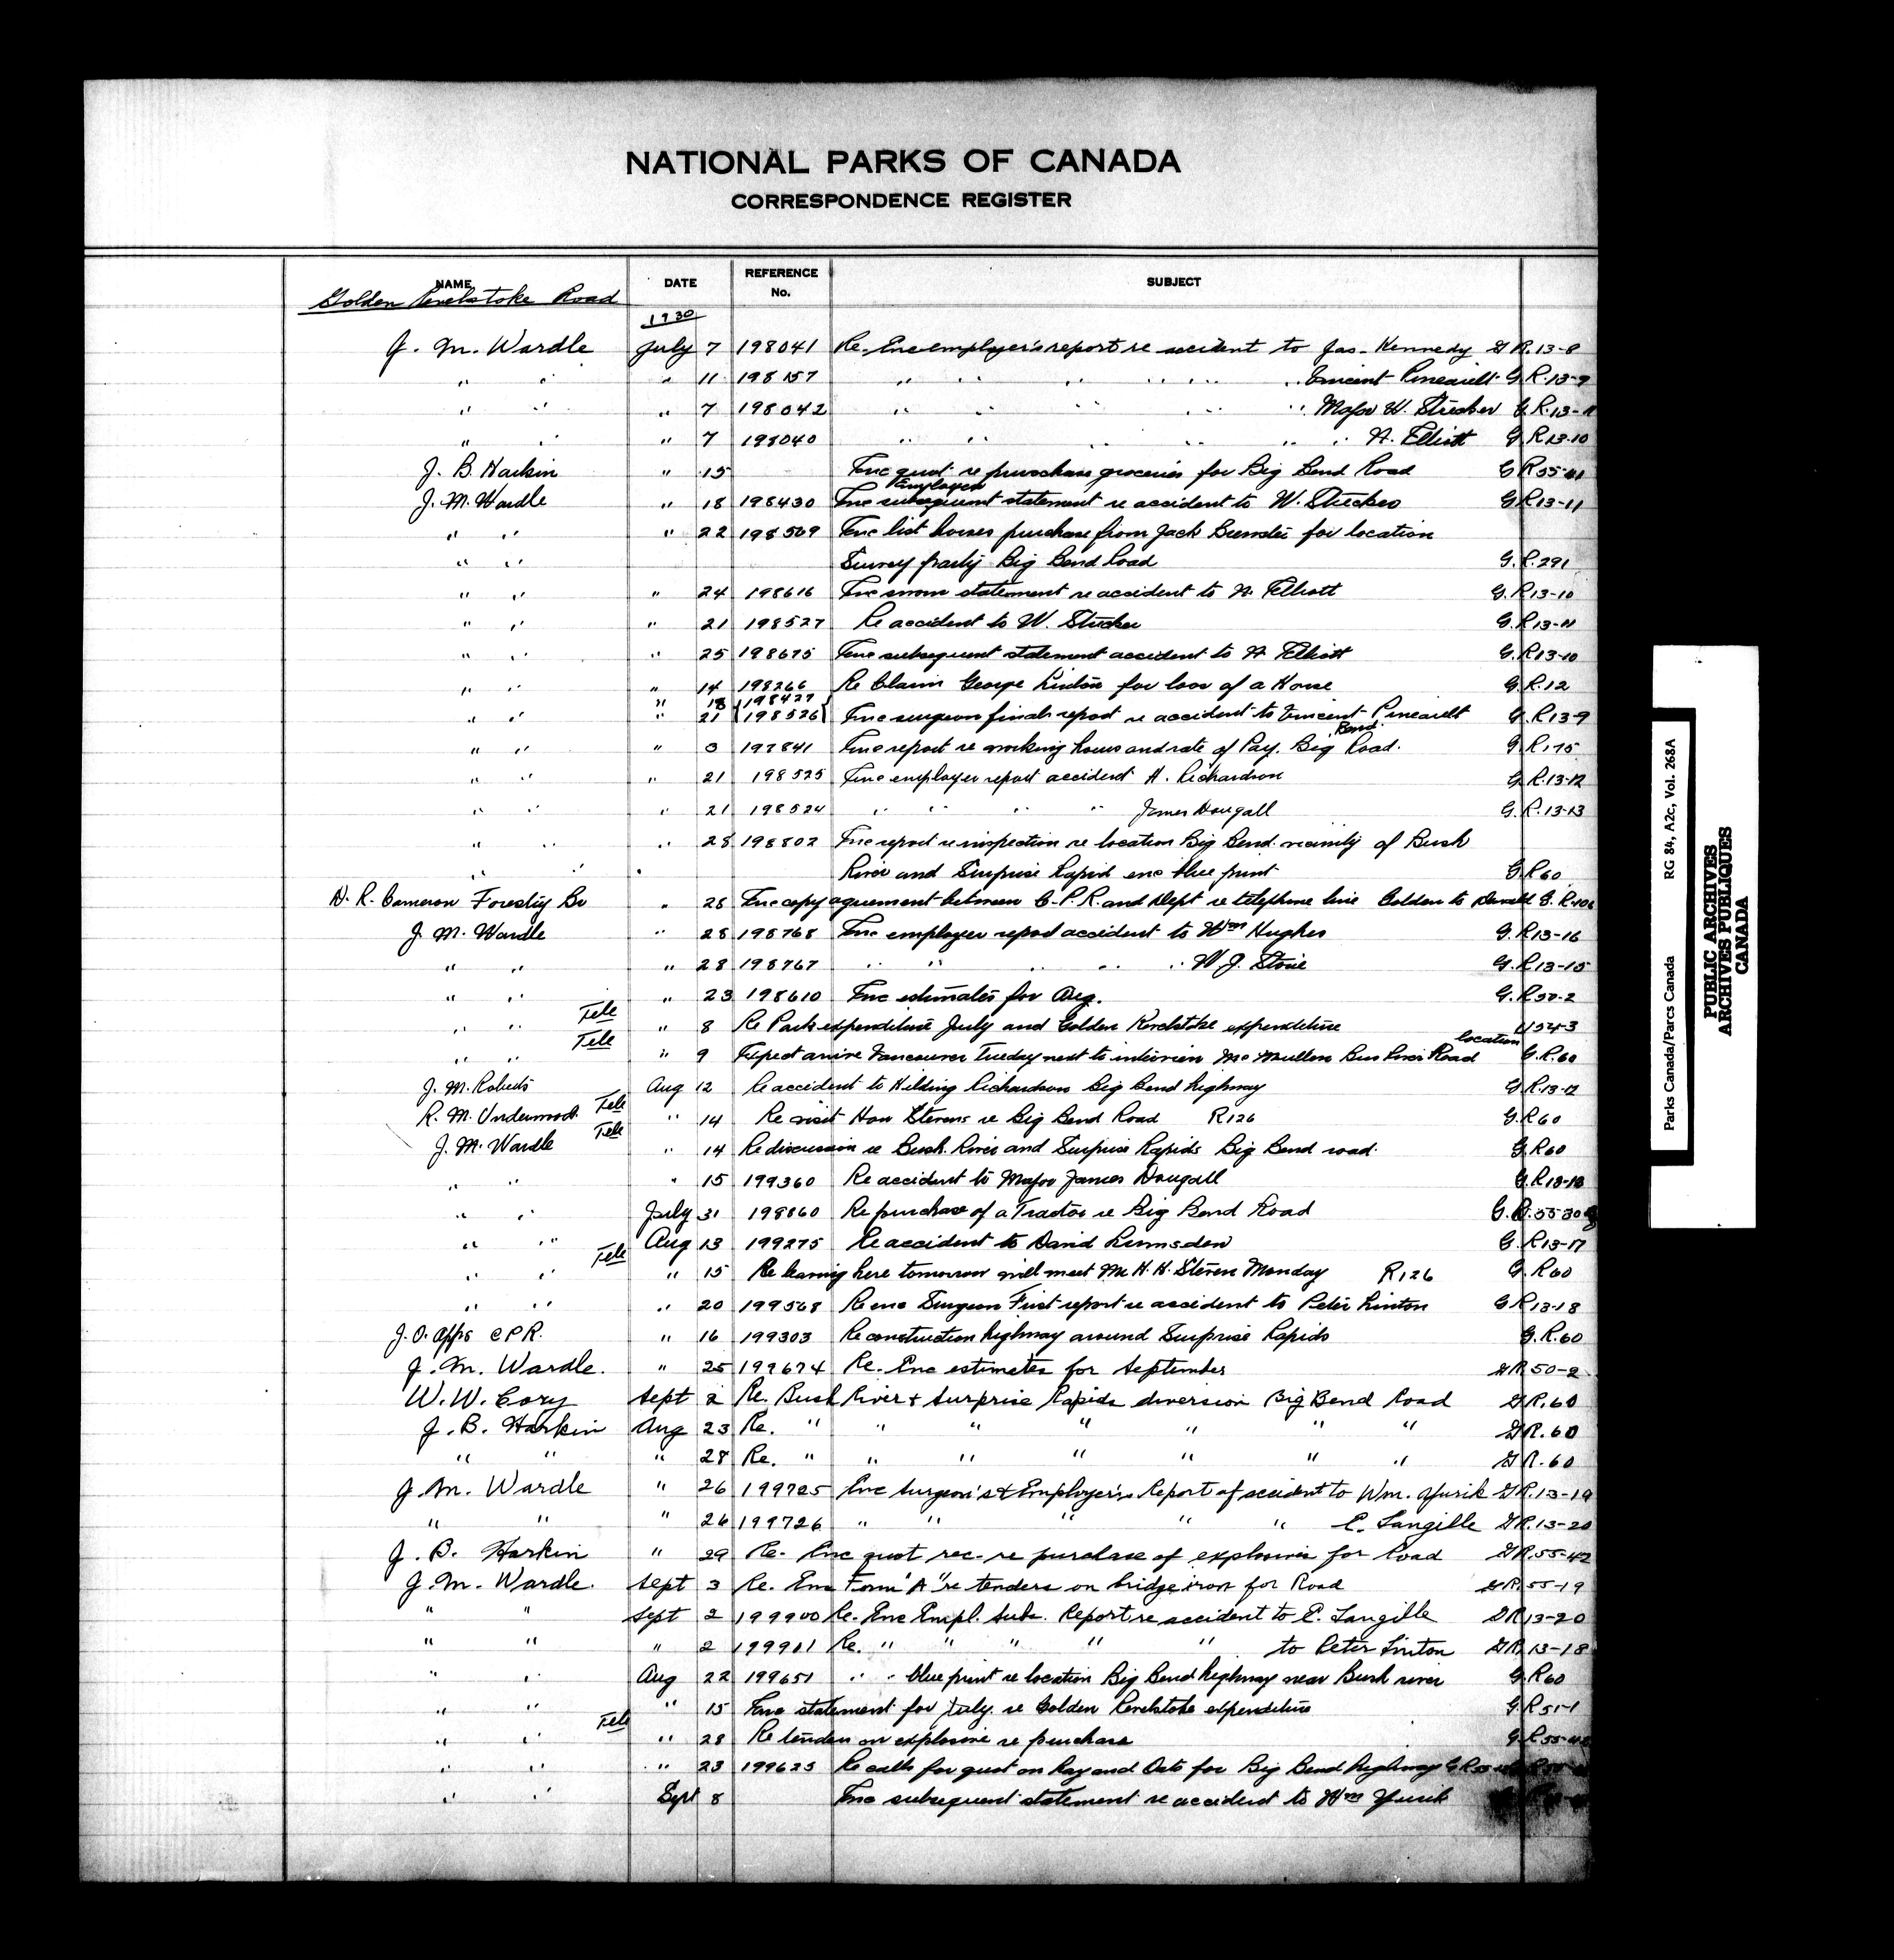 NATIONAL PARKS OF CANADA
CORRESPONDENCE REGISTER
NAME DATE REFERENCE No. SUBJECT
Golden Revelstoke Road
1930
J. M. Wardle July 7 198041 Re. Enc employer's report re accident to Jas. Kennedy G R.13-8
" " " 11 198157 " " " " " " Vincent Pineault G R.13-9
" " " 7 198042 " " " " " Major W. Stucker G.R.13-11
" " " 7 198040 " " " " " " H. Elliott G R13-10
J. B. Harkin " 15 Enc quot. re purchase groceries for Big Bend Road G R55-41
Employer
J. M. Wardle " 18 198430 Enc subsequent statement re accident to W. Stucker G.R13-11
" " " 22 198509 Enc list horses purchase from Jack for location
" " Survey party Big Bend Road G.R.291
" " " 24 198616 Enc statement re accident to H. Elliott G.R13-10
" " " 21 198527 Re accident to W. Stucker G.R13-11
" " " 25 198675 Enc subsequent statement accident to H Elliott G.R13-10
" " " 14 198266 Re Claim George Linton for loss of a Horse G.R.12
" 18 198427
" " " 21 198526 Enc surgeon final report re accident to Vincent Pineault G.R13-9
Bend
" " " 3 197841 Enc report re working hours and rate of Pay. Big Road. G.R.175
" " " 21 198525 Enc employer report accident H. Richardson G.R.13-12
" " " 21 198524 " " " " James Dougall G.R.13-13
" " " 28 198802 Enc report re inspection re location Big Bend vicinity of Bush
" " River and Surprise Rapid enc blue print G.R60
D. R. Cameron Forestry Br " 28 Enc copy agreement between C.P.R. and Dept re telephone line Golden to Donald G.R.106
J. M. Wardle " 28 198768 Enc employer report accident to Wm Hughes G.R13-16
" " " 28 198767 " " " " " W J. Stove G.R13-15
" " " 23 198610 Enc estimates for Aug. G.R50-2
" " Tele " 8 Re Park expenditure July and Golden Revelstoke expenditure U54-3
location
" " Tele " 9 Expect arrive Vancouver Tuesday next to interview McMullen Bus River Road G.R.60
J. M. Roberts Aug 12 Re accident to Hilding Richardson Big Bend highway G.R.13-12
R. M. Underwood Tele " 14 Re visit Hon Stevens re Big Bend Road R126 G.R60
J. M. Wardle Tele " 14 Re discussion re Bush River and Surprise Rapids Big Bend road. G.R60
" " " 15 199360 Re accident to Major James Dougall G.R13-13
" " July 31 198860 Re purchase of a Tractor re Big Bend Road G.R.55-30
" " Aug 13 199275 Re accident to David Lumsden G.R13-17
" " Tele " 15 Re leaving here tomorrow will meet Mr H. H. Steven Monday R126 G.R60
" " " 20 199568 Re enc Surgeon First report re accident to Peter Linton G.R13-18
J. O. Apps C P R. " 16 199303 Re construction highway around Surprise Rapids G.R.60
J. M. Wardle. " 25 199674 Re. Enc estimates for September G R.50-2
W. W. Cory Sept 2 Re. Bush River & Surprise Rapids diversion Big Bend Road G R.60
J. B. Harkin Aug 23 Re. " " " " " " " G R.60
" " " 28 Re. " " " " " " " G R.60
J. M. Wardle " 26 199725 Enc Surgeon's & Employer's Report of accident to Wm. Yurik G R.13-19
" " " 26 199726 " " " " " E. Langille G R.13-20
J. B. Harkin " 29 Re. Enc quot rec. re purchase of explosives for Road G R.55-42
J. M. Wardle. Sept 3 Re. Enc Form "A" re tenders on bridge iron for Road G R.55-19
" " Sept 2 199900 Re. Enc Empl. Sub. Report re accident to E. Langille G R13-20
" " " 2 199901 Re. " " " " " to Peter Linton G R.13-18
" " Aug 22 199651 " " blue print re location Big Bend highway near Bush river G.R60
" " " 15 Enc statement for July re Golden Revelstoke expenditure G.R51-1
" " Tele " 28 Re tender on explosive re purchase G.R55-42
" " " 23 199623 Re calls for quot on Hay and Oats for Big Bend highway
" " Sept 8 Enc subsequent statement re accident to Wm Yurik
Parks Canada/Parcs Canada RG 84, A2c, Vol. 268A
PUBLIC ARCHIVES
ARCHIVES PUBLIQUES
CANADA